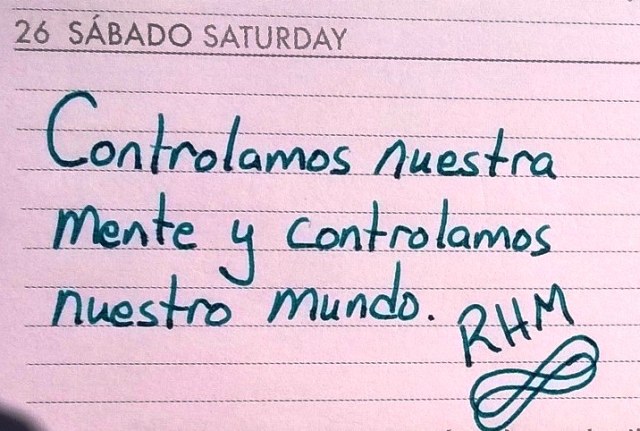 26 SÁBADO SATURDAY
Controlamos nuestra
mente y controlamos
nuestro mundo.
RHM